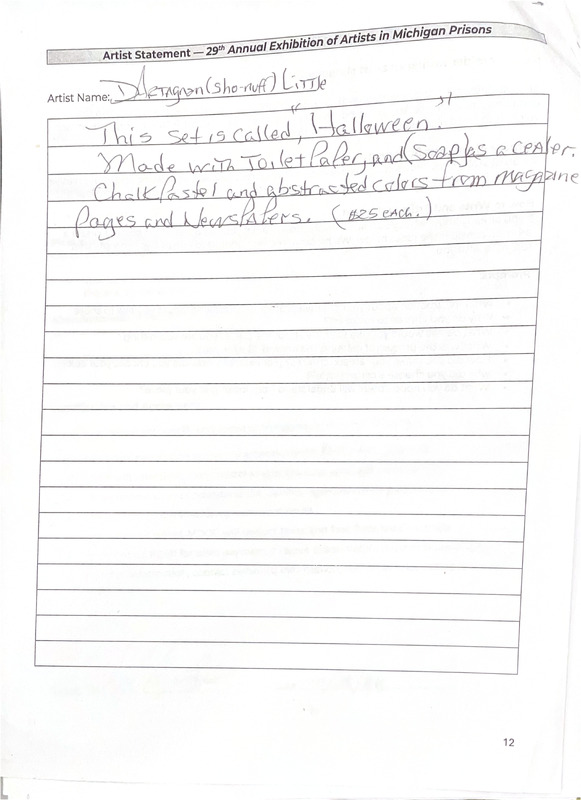 Artist Statement — 29th Annual Exhibition of Artists in Michigan Prisons
Artist Name: (sho-nuff) Little
This set is called, "Halloween."
Made with Toilet Paper, and (Soap) as a cealer.
Chalk Pastel and abstracted colors from magazine
Pages and Newspapers. ($25 each.)
12